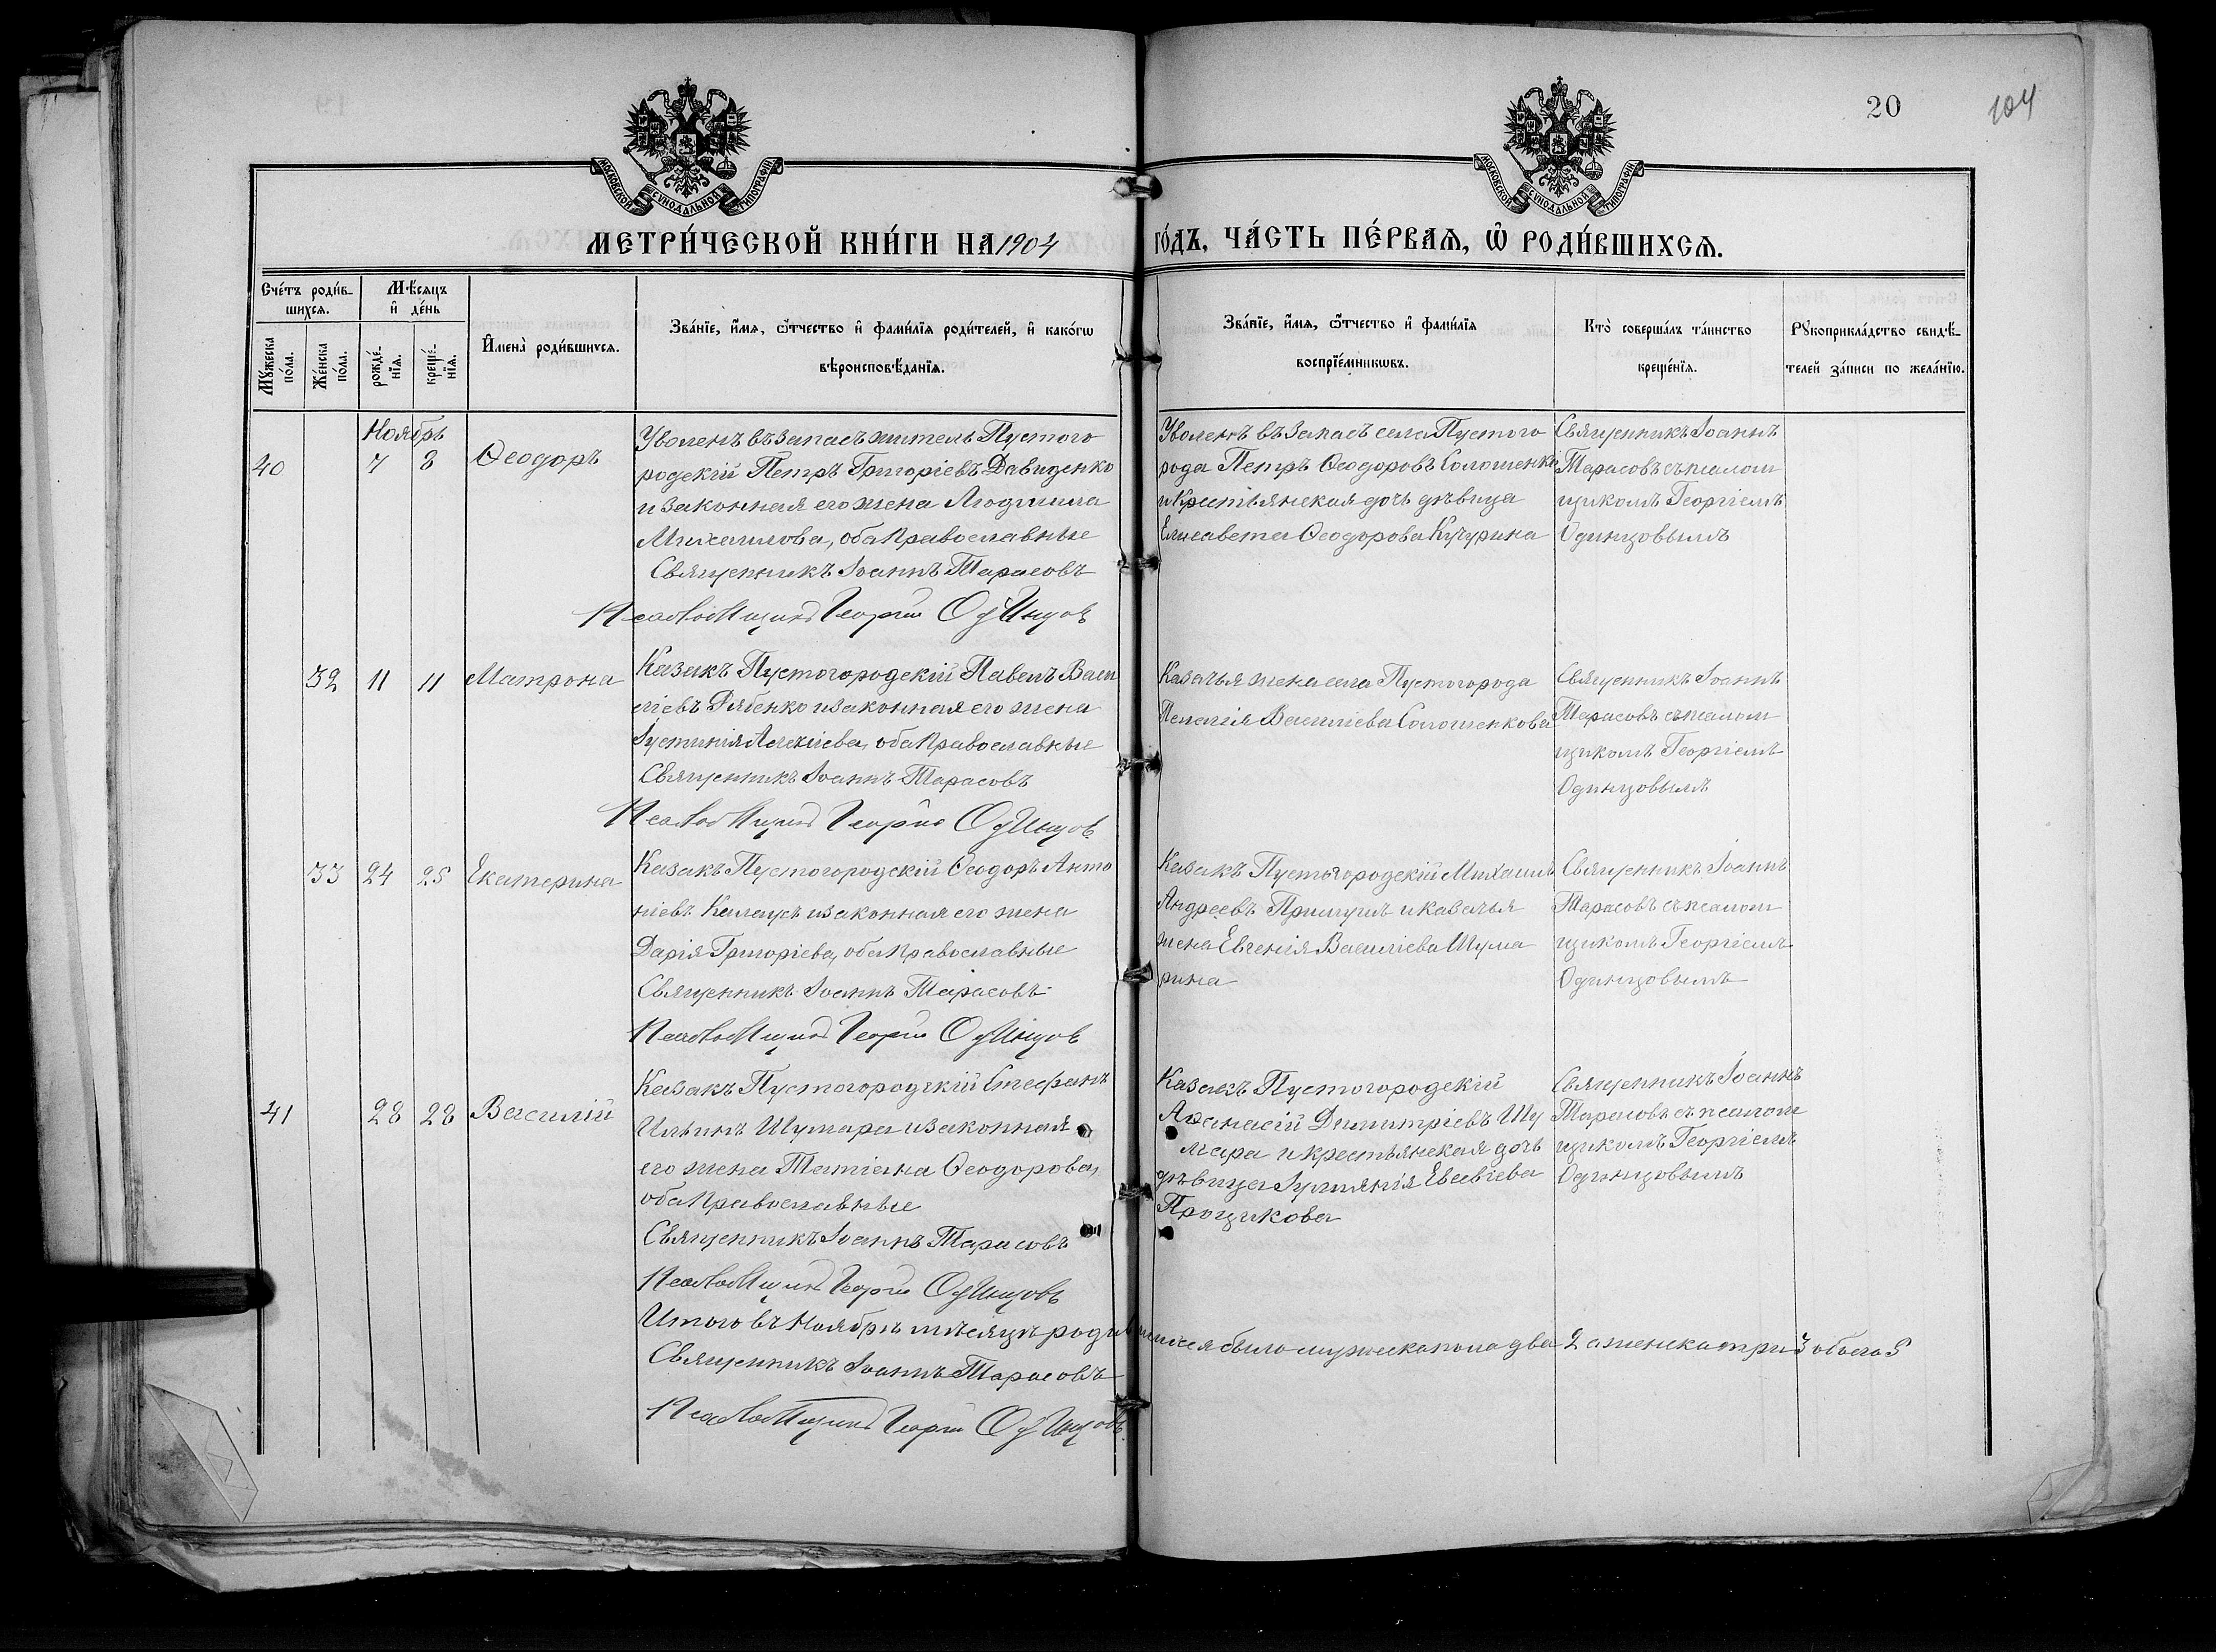 20
104
МОСКОВСКОЙ СѴНОДАЛЬНОЙ ТИПОГРАФІИ
МОСКОВСКОЙ СѴНОДАЛЬНОЙ ТИПОГРАФІИ
МЕТРИ́ЧЕСКОЙ КНИ́ГИ НА 1904 ГО́ДЪ, ЧА́СТЬ ПЕ́РВАѦ, Ѡ҆ РОДИ́ВШИХСѦ.
Сче́тъ роди́в-
шихсѧ.
Мꙋ́жеска по́ла.
Же́нска по́ла.
Мѣ́сѧцъ
и҆ де́нь
рожде́-нїѧ.
креще́-нїѧ.
И҆мена̀ роди́вшихсѧ.
Зва́нїе, и҆́мѧ, ѻ҆́тчество и҆ фами́лїѧ роди́телей, и҆ како́гѡ
вѣроисповѣ́данїѧ.
Зва́нїе, и҆́мѧ, ѻ҆́тчество и҆ фами́лїѧ
воспрїе́мникѡвъ.
Кто̀ соверша́лъ та́инство
креще́нїѧ.
Рꙋкоприкла́дство свидѣ́-
телей за́писи по жела́нїю.
Ноябрь
40
7 8
Ѳеодоръ
Уволенъ въ запасъ житель Пустого
родскій Петръ Григоріевъ Давиденко
и законная его жена Людмила
Михаилова, оба православные
Священникъ Іоаннъ Тарасовъ
Псаломщикъ Георгій Одинцовъ
Уволенъ въ запасъ села Пустого
рода Петръ Ѳеодоровъ Солошенко
и крестьянская дочь дѣвица
Елисавета Ѳеодорова Кучурина
Священникъ Іоаннъ
Тарасовъ съ псалом
щикомъ Георгіемъ
Одинцовымъ
32 11 11
Матрона
Казакъ Пустогородскій Павелъ Васи
ліевъ Рябенко и законная его жена
Іустинія Алексіева, оба православные
Священникъ Іоаннъ Тарасовъ
Псаломщикъ Георгій Одинцовъ
Казачья жена села Пустогорода
Пелагія Василіева Солошенкова
Священникъ Іоаннъ
Тарасовъ съ псалом
щикомъ Георгіемъ
Одинцовымъ
33 24 25
Екатерина
Казакъ Пустогородскій Ѳеодоръ Анто
ніевъ Калаусъ и законная его жена
Дарія Григоріева, оба православные
Священникъ Іоаннъ Тарасовъ
Псаломщикъ Георгій Одинцовъ
Казакъ Пустогородскій Михаилъ
Андреевъ и казачья
жена Евгенія Василіева Шума
рина
Священникъ Іоаннъ
Тарасовъ съ псалом
щикомъ Георгіемъ
Одинцовымъ
41 28 28
Василій
Казакъ Пустогородскій Стефанъ
Ильинъ Шумара и законная
его жена Татіана Ѳеодорова,
оба православные
Священникъ Іоаннъ Тарасовъ
Псаломщикъ Георгій Одинцовъ
Казакъ Пустогородскій
Аѳанасій Димитріевъ Шу
мара и крестьянская дочь
дѣвица Іуліянія Евсевіева
Прощикова
Священникъ Іоаннъ
Тарасовъ съ псалом
щикомъ Георгіемъ
Одинцовымъ
Итого въ Ноябрѣ мѣсяцѣ родившихся было мужеска пола два 2 а женска три 3 обоего 5
Священникъ Іоаннъ Тарасовъ
Псаломщикъ Георгій Одинцовъ